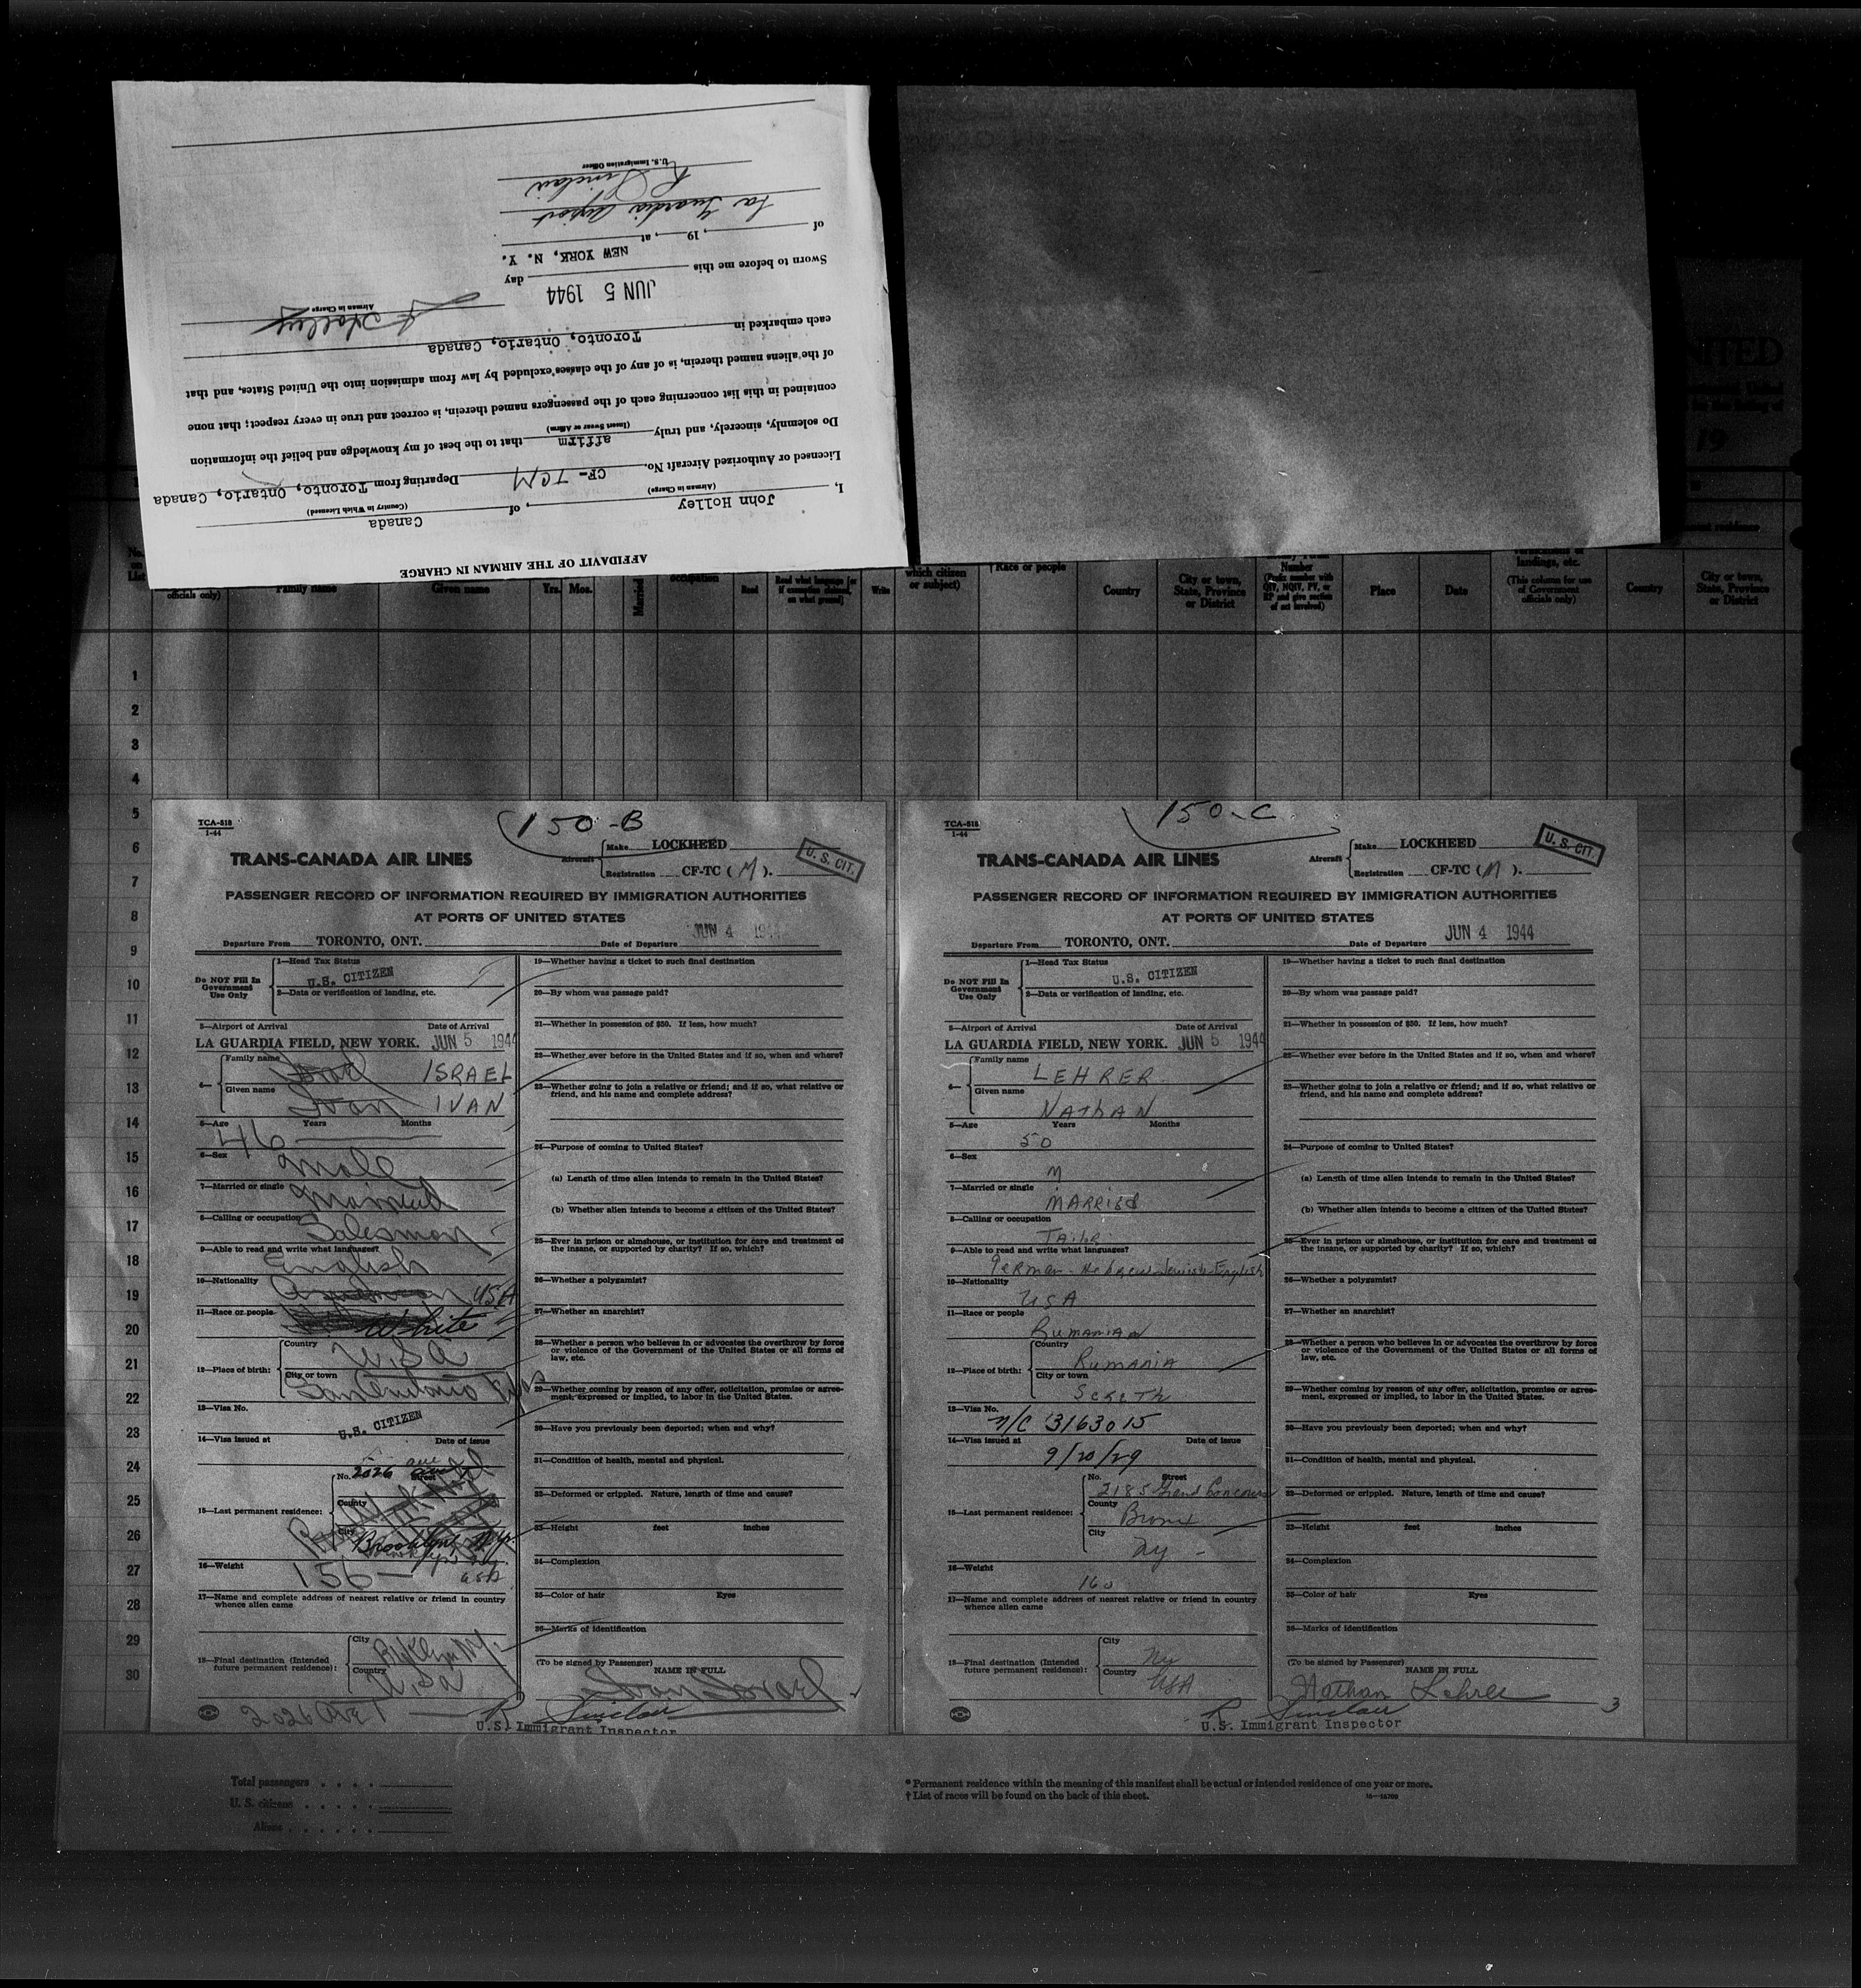 AFFIDAVIT OF THE AIRMAN IN CHARGE
I, John Holley, of Canada
(Airman in Charge) (Country in Which Licensed)
Licensed or Authorized Aircraft No. CF-TCM Departing from Toronto, Ontario, Canada
Do solemnly, sincerely, and truly affirm that to the best of my knowledge and belief the information
(Insert Swear or Affirm)
contained in this list concerning each of the passengers named therein, is correct and true in every respect; that none
of the aliens named therein, is of any of the classes excluded by law from admission into the United States, and that
each embarked in Toronto, Ontario, Canada
J Holley
Airman in Charge
JUN 5 1944
Sworn to before me this day
NEW YORK, N. Y.
of , 19 , at
La Guardia Airport
R Sinclair
U.S. Immigration Officer
NITED
19
No. on List
officials only)
Family name
Given name
Yrs. Mos.
Married
occupation
Read
Read what language [or if exemption claimed, on what ground]
Write
which citizen or subject)
†Race or people
Country
City or town, State, Province or District
Number
(Prefix number with QIV, NQIV, PV, or RP and give section of act involved)
Place
Date
landings, etc.
(This column for use of Government officials only)
Country
City or town, State, Province or District
1
2
3
4
5
6
7
8
9
10
11
12
13
14
15
16
17
18
19
20
21
22
23
24
25
26
27
28
29
30
150-B
TCA-518
1-44
TRANS-CANADA AIR LINES
Aircraft
Make LOCKHEED
Registration CF-TC ( M ).
U. S. CIT.
PASSENGER RECORD OF INFORMATION REQUIRED BY IMMIGRATION AUTHORITIES
AT PORTS OF UNITED STATES
Departure From TORONTO, ONT. Date of Departure JUN 4 1944
Do NOT Fill In Government Use Only
1—Head Tax Status
U.S. CITIZEN
2—Data or verification of landing, etc.
3—Airport of Arrival Date of Arrival
LA GUARDIA FIELD, NEW YORK. JUN 5 1944
4— Family name Israel ISRAEL
Given name Ivan IVAN
5—Age Years Months
46
6—Sex
Male
7—Married or single
Married
8—Calling or occupation
Salesman
9—Able to read and write what languages?
English
10—Nationality
American USA
11—Race or people
White
12—Place of birth:
Country
U.S.a
City or town
San Antonio Texas
13—Visa No.
U.S. CITIZEN
14—Visa issued at Date of issue
15—Last permanent residence:
No. 2026 ave Street
County
City
Brooklyn N.Y.
16—Weight
156 — USA
17—Name and complete address of nearest relative or friend in country
whence alien came
18—Final destination (Intended future permanent residence):
City Bklyn NY.
Country U.Sa
2026 Ave T
19—Whether having a ticket to such final destination
20—By whom was passage paid?
21—Whether in possession of $50. If less, how much?
22—Whether ever before in the United States and if so, when and where?
23—Whether going to join a relative or friend; and if so, what relative or
friend, and his name and complete address?
24—Purpose of coming to United States?
(a) Length of time alien intends to remain in the United States?
(b) Whether alien intends to become a citizen of the United States?
25—Ever in prison or almshouse, or institution for care and treatment of
the insane, or supported by charity? If so, which?
26—Whether a polygamist?
27—Whether an anarchist?
28—Whether a person who believes in or advocates the overthrow by force
or violence of the Government of the United States or all forms of
law, etc.
29—Whether coming by reason of any offer, solicitation, promise or agree-
ment, expressed or implied, to labor in the United States.
30—Have you previously been deported; when and why?
31—Condition of health, mental and physical.
32—Deformed or crippled. Nature, length of time and cause?
33—Height feet inches
34—Complexion
35—Color of hair Eyes
36—Marks of identification
(To be signed by Passenger)
NAME IN FULL
Ivan Israel
R Sinclair
U.S. Immigrant Inspector
150-C
TCA-518
1-44
TRANS-CANADA AIR LINES
Aircraft
Make LOCKHEED
Registration CF-TC ( M ).
U. S. CIT.
PASSENGER RECORD OF INFORMATION REQUIRED BY IMMIGRATION AUTHORITIES
AT PORTS OF UNITED STATES
Departure From TORONTO, ONT. Date of Departure JUN 4 1944
Do NOT Fill In Government Use Only
1—Head Tax Status
U.S. CITIZEN
2—Data or verification of landing, etc.
3—Airport of Arrival Date of Arrival
LA GUARDIA FIELD, NEW YORK. JUN 5 1944
4— Family name
LEHRER
Given name
NATHAN
5—Age Years Months
50
6—Sex
M
7—Married or single
MARRIED
8—Calling or occupation
Tailor
9—Able to read and write what languages?
German - Hebrew Jewish - English
10—Nationality
USA
11—Race or people
Rumanian
12—Place of birth:
Country
Rumania
City or town
Sereth
13—Visa No.
N/C 3163015
14—Visa issued at Date of issue
9/20/29
15—Last permanent residence:
No. Street
2185 Grand Concourse
County
Bronx
City
NY
16—Weight
160
17—Name and complete address of nearest relative or friend in country
whence alien came
18—Final destination (Intended future permanent residence):
City NY
Country USA
19—Whether having a ticket to such final destination
20—By whom was passage paid?
21—Whether in possession of $50. If less, how much?
22—Whether ever before in the United States and if so, when and where?
23—Whether going to join a relative or friend; and if so, what relative or
friend, and his name and complete address?
24—Purpose of coming to United States?
(a) Length of time alien intends to remain in the United States?
(b) Whether alien intends to become a citizen of the United States?
25—Ever in prison or almshouse, or institution for care and treatment of
the insane, or supported by charity? If so, which?
26—Whether a polygamist?
27—Whether an anarchist?
28—Whether a person who believes in or advocates the overthrow by force
or violence of the Government of the United States or all forms of
law, etc.
29—Whether coming by reason of any offer, solicitation, promise or agree-
ment, expressed or implied, to labor in the United States.
30—Have you previously been deported; when and why?
31—Condition of health, mental and physical.
32—Deformed or crippled. Nature, length of time and cause?
33—Height feet inches
34—Complexion
35—Color of hair Eyes
36—Marks of identification
(To be signed by Passenger)
NAME IN FULL
Nathan Lehrer
3
R Sinclair
U.S. Immigrant Inspector
Total passengers . . . .
U. S. citizens . . . . .
Aliens . . . . . .
* Permanent residence within the meaning of this manifest shall be actual or intended residence of one year or more.
† List of races will be found on the back of this sheet.